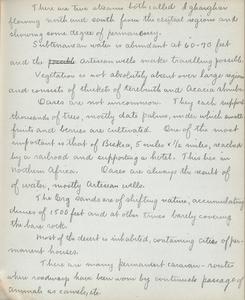 There are two streams both called Igharghar
flowing north and south from the central regions and
showing some degree of permanency.
Subterranean water is abundant at 60-70 feet
and the possible Artesian wells make travelling possible.
Vegetation is not absolutely absent over large regions
and consists of thickets of terebinth and Acacia shrubs.
Oases are not uncommon. They each support
thousands of trees, mostly date palms, under which small
fruits and berries are cultivated. One of the most
important is that of Biskra, 5 miles x ½ miles, reached
by a railroad and supporting a hotel. This lies in
Northern Africa. Oases are always the result of
of water, mostly Artesian wells.
The long sands are of shifting nature, accumulating
dunes of 1500 feet and at other times barely covering
the bare rock.
Most of the desert is inhabited, containing cities of per-
manent houses.
There are many permanent caravan-routes
where roadways have been worn by continual passage of
animals as camels, etc.